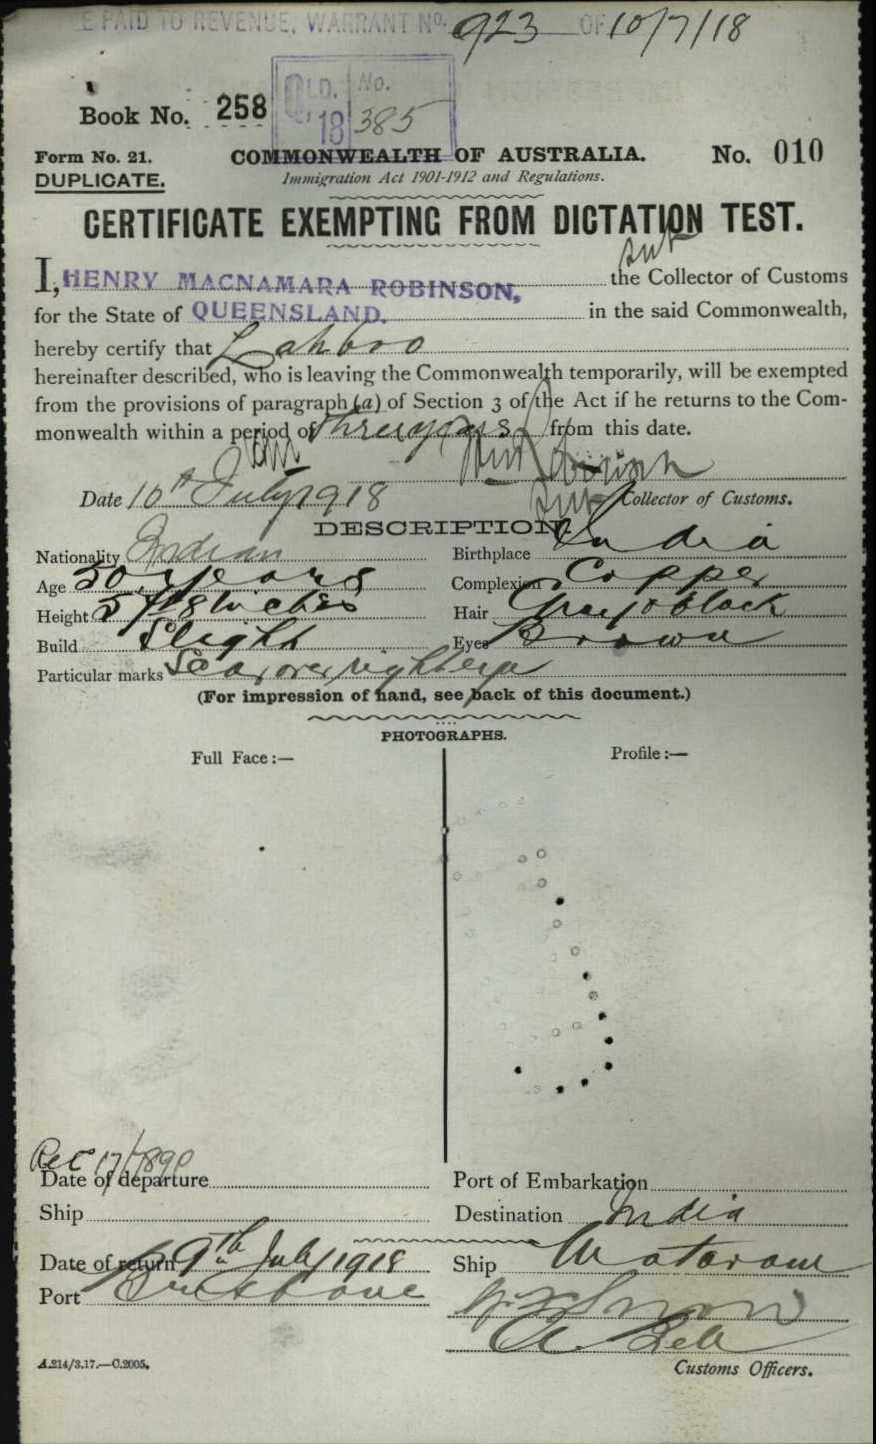 E PAID TO REVENUE, WARRANT No. 923 OF 10/7/18
Book No. 258
QLD. No.
18 385
Form No. 21. COMMONWEALTH OF AUSTRALIA. No. 010
DUPLICATE. Immigration Act 1901-1912 and Regulations.
CERTIFICATE EXEMPTING FROM DICTATION TEST.
I, HENRY MACNAMARA ROBINSON, the Collector of Customs
for the State of QUEENSLAND. in the said Commonwealth,
hereby certify that Lahboo
hereinafter described, who is leaving the Commonwealth temporarily, will be exempted
from the provisions of paragraph (a) of Section 3 of the Act if he returns to the Com-
monwealth within a period of three years from this date.
Date 10th July 1918 Collector of Customs.
DESCRIPTION.
Nationality Indian Birthplace India
Age 50 years Complexion Copper
Height 5 ft 8 inches Hair Grey & black
Build Slight Eyes Brown
Particular marks Scar over right eye
(For impression of hand, see back of this document.)
PHOTOGRAPHS.
Full Face :— Profile :—
Date of departure Port of Embarkation
Ship Destination India
Date of return 9th July 1918 Ship Mataram
Port Brisbane
Customs Officers.
A.214/3.17.—C.2005.